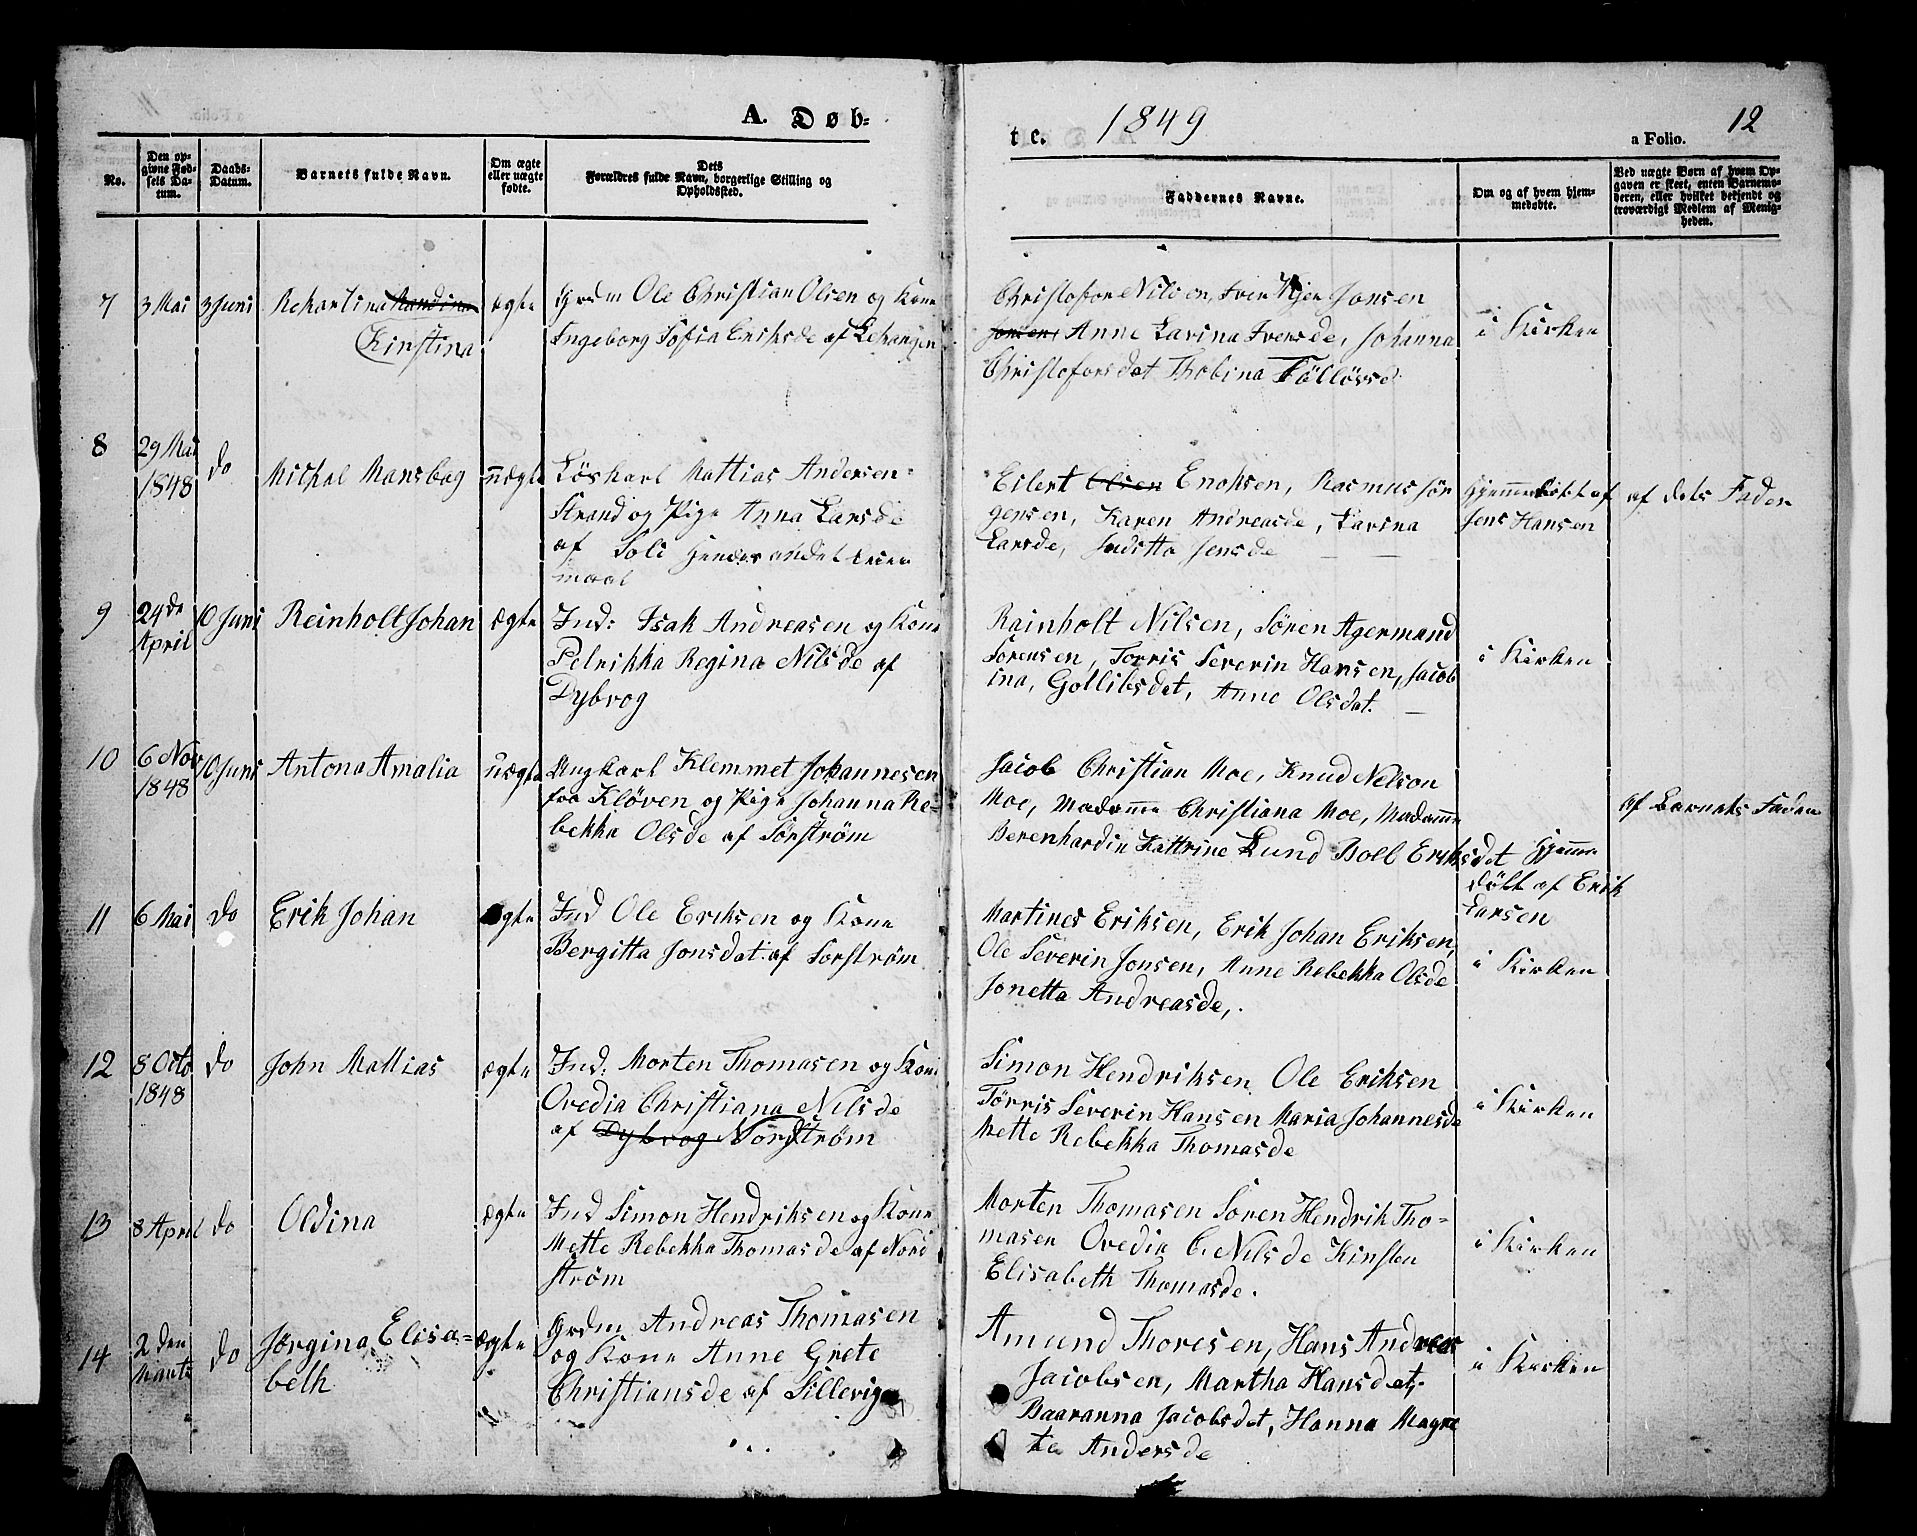 A. Døb-
te. 1849
a Folio. 12
No.
Den op-
givne Fød-
sels Da-
tum.
Daabs-
Datum.
Barnets fulde Navn.
Om ægte
eller uægte
fødte.
Dets
Forældres fulde Navn, borgerlige Stilling og
Opholdssted.
Faddernes Navne.
Om og af hvem hjem-
medøbte.
Ved uægte Børn af hvem Op-
gaven er skeet, enten Barnemo-
deren, eller hvilket bekjendt og
troværdigt Medlem af Menig-
heden.
7 3 Mai 3 Juni
Kirstina
ægte
Grdm Ole Christian Olsen og Kone
Ingeborg Sofia Eriksde af
Christofor Nilsen, Iver Kjer Jonsen
Jonsen, Anne Larina Iversde, Johanna
Christoforsdat Thobina
i Kirken
8 29 Mai
1848
do
Michal Mansbag
uægte
Løskarl Mattias Andersen
Strand og Pige Anna Larsde
af Soli Hendes andet Leier
maal
Eilert Olsen Enoksen, Rasmus Jør
gensen, Karen Andreasde, Larina
Larsde, Juditta Jensde
Hjemmedøbt af
Jens Hansen
af dets Fader
9 24de
April
10 Juni
Reinholt Johan
ægte
Ind: Isak Andreasen og Kone
Petrikka Regina Nilsde af
Dybvog
Rainholt Nilsen, Søren Agermand
Sorensen, Torris Severin Hansen, Jacob
ina, Gottlibsdet, Anne Olsdat.
i Kirken
10 6 Nov
1848
10 Juni
Antona Amalia
uægte
Ungkarl Klemmet Johannesen
fra Kløven og Pige Johanna Re-
bekka Olsde af Sørstrøm
Jacob Christian Moe, Knud Nelson
Moe, Madamme Christiana Moe, Madamme
Berenhardin Kattrine Lund Boel Eriksdet
Hjemme
døbt af Erik
Larsen
af Barnets Fader
11 6 Mai do
Erik Johan
ægte
Ind Ole Eriksen og Kone
Bergitta Jonsdat af Sorstrøm
Martines Eriksen, Erik Johan Eriksen,
Ole Severin Jonsen, Anne Rebekka Olsde
Jonetta Andreasde,
i Kirken
12 8 Octo
1848
do
John Mattias
ægte
Ind: Morten Thomasen og Kone
Ovedia Christiana Nilsde
af Dybvog Nordstrøm
Simon Hendriksen Ole Eriksen
Tørris Severin Hansen Maria Johannesde
Mette Rebekka Thomasde
i Kirken
13 8 April do
Oldina
ægte
Ind Simon Hendriksen og Kone
Mette Rebekka Thomasde af Nord
strøm
Morten Thomasen Soren Hendrik Tho-
masen Ovedia C. Nilsde Kirsten
Elisabeth Thomasde.
i Kirken
14 2 den
Marts
do
Jørgina Elisa-
beth
ægte
Grdm Andreas Thomasen
og Kone Anne Grete
Christiansde af Sillevig
Amund Thoresen, Hans Andreas
Jacobsen, Martha Hansdet,
Baaranna Jacobsdet, Hanna Magre
ta Andersde
i Kirken